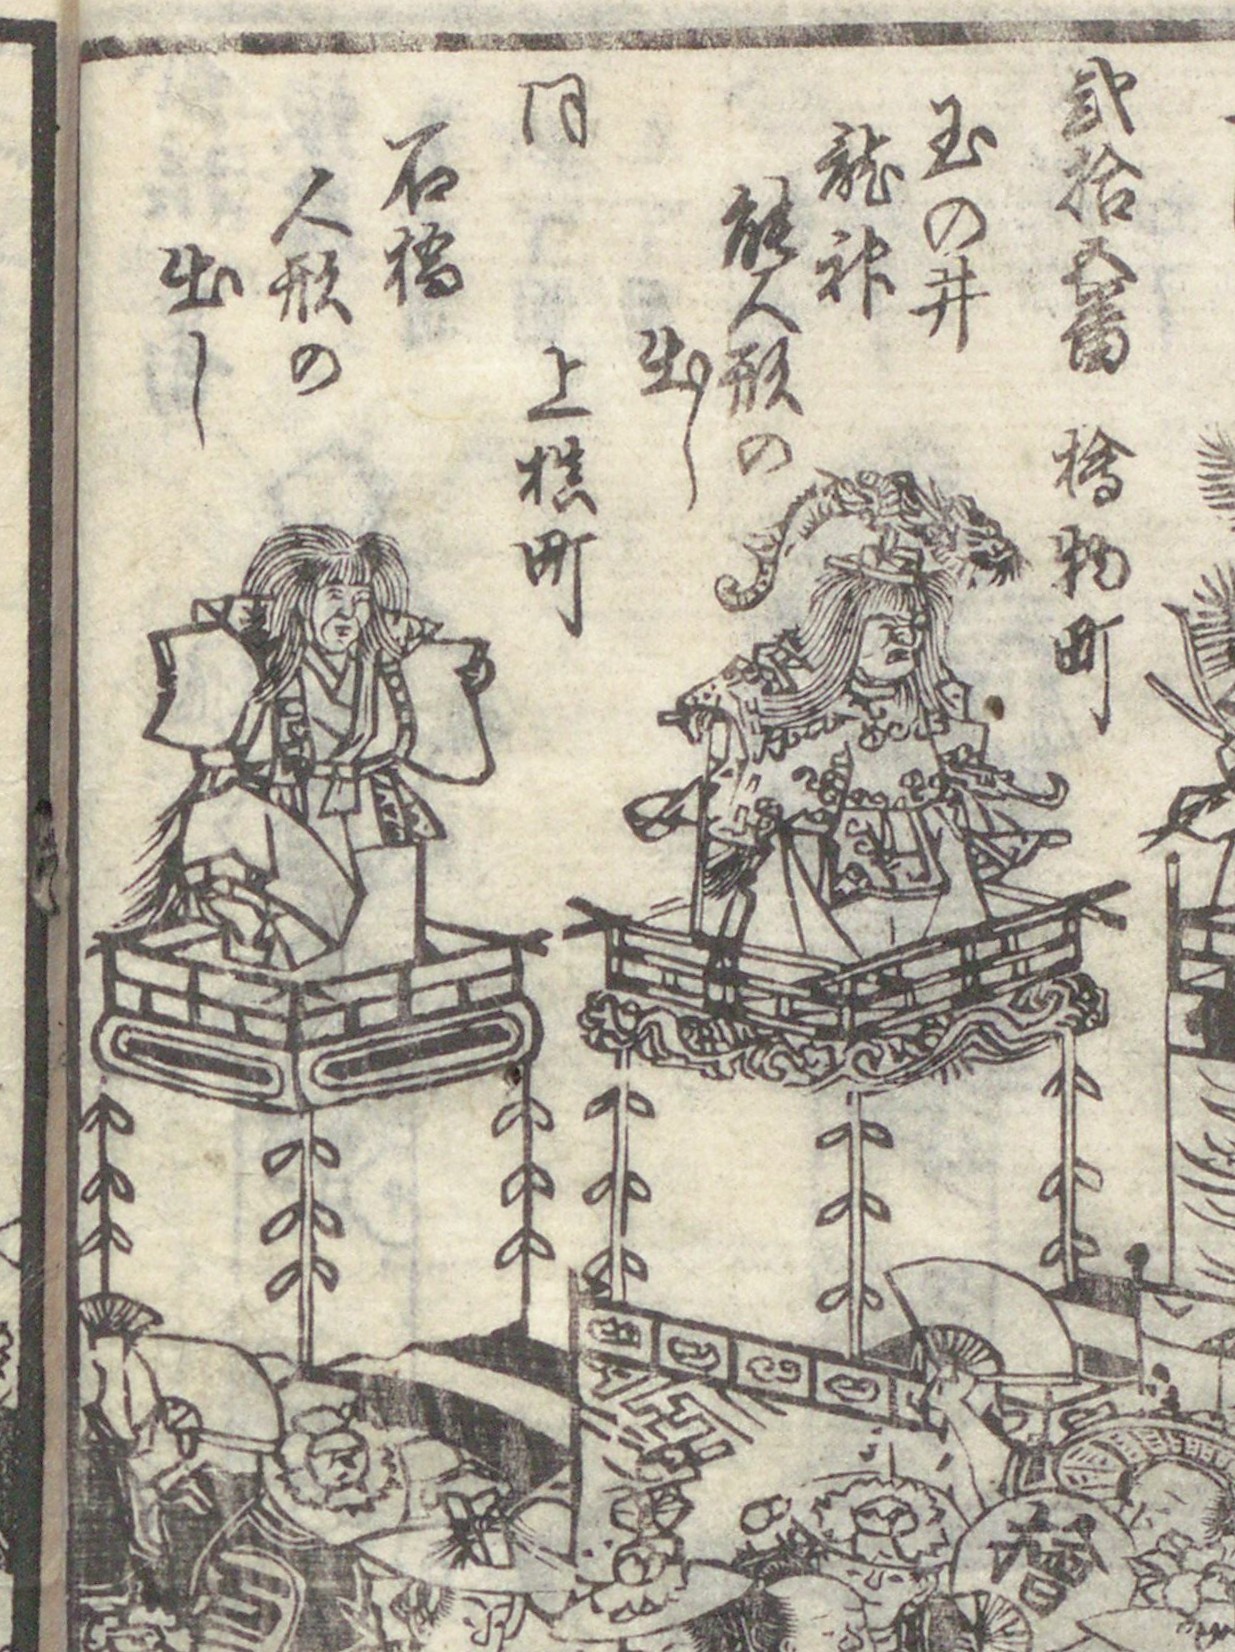 弐拾五番 檜物町
玉の井
龍神
能人形の
出し
同 上槙町
石橋
人形の
出し